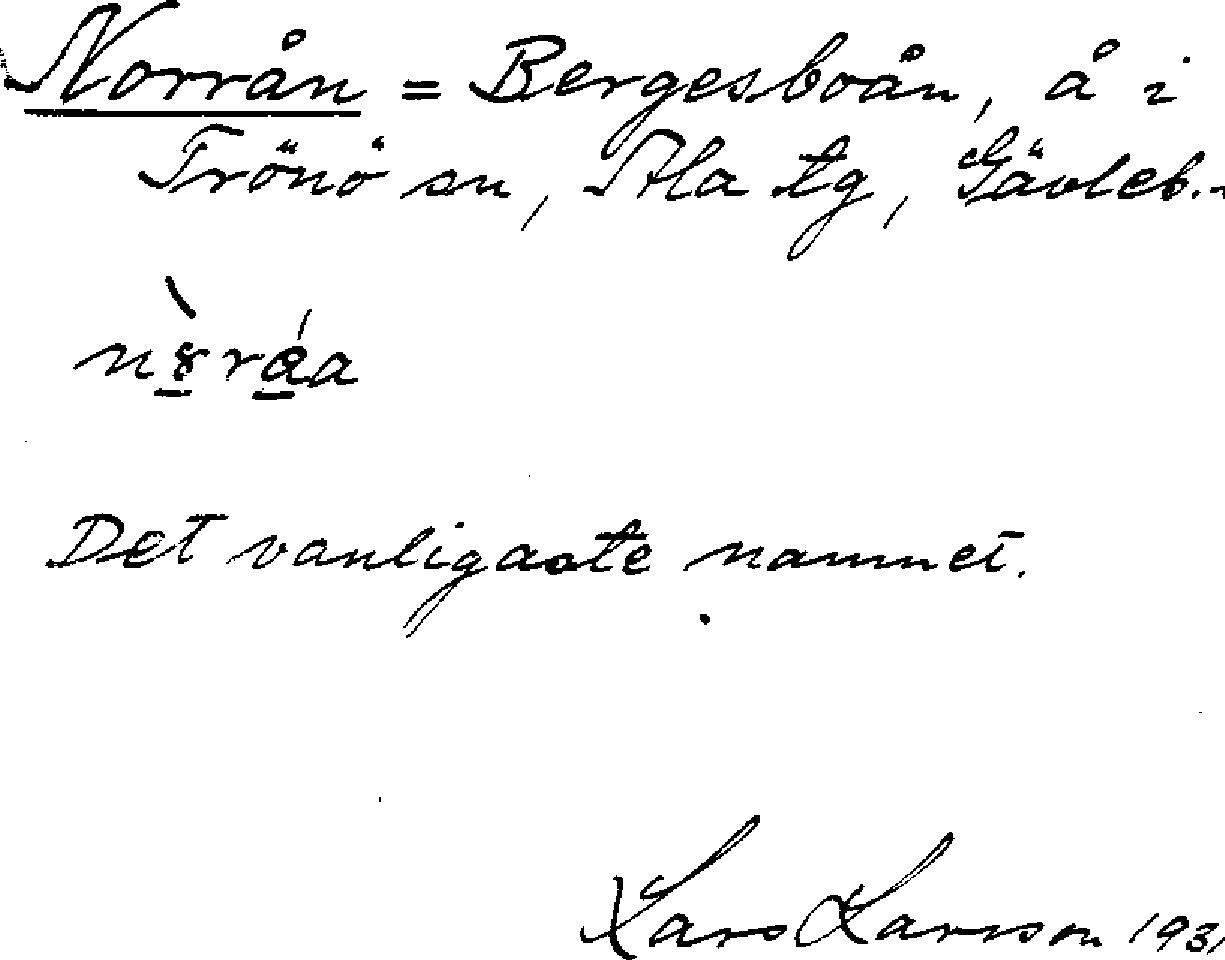 Norrån = Bergesboån, å i
Trönö sn, Ala tg, Gävleb.
Det vanligaste namnet.
Lars Larsson 1931